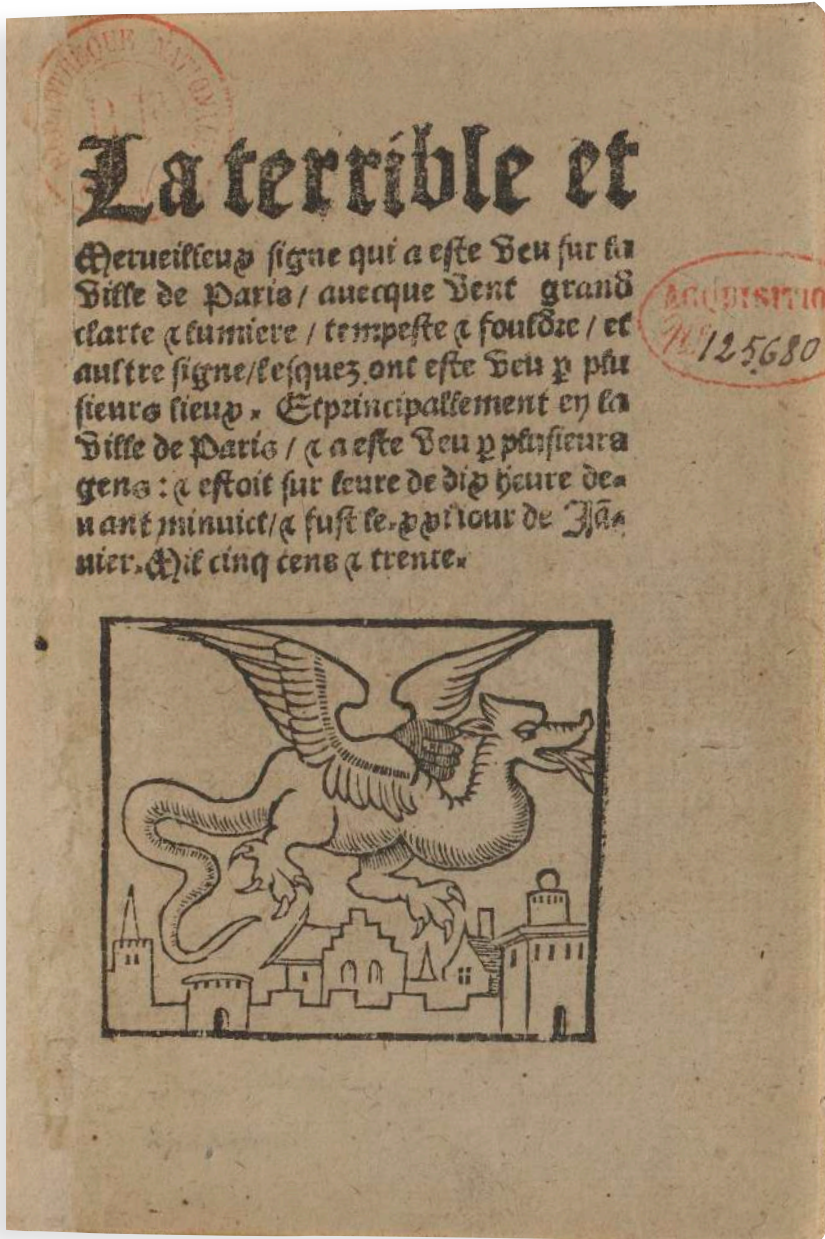 BIBLIOTHEQUE NATIONALE
La terrible et
Merueilleux signe qui a este veu sur la
ville de Paris / auecque vent grand
clarte & lumiere / tempeste & fouldre / et
aultre signe / lesquez ont este veu p̲ plu
sieurs lieux . Et principallement en la
ville de Paris / & a este veu p̲ plusieurs
gens : & estoit sur leure de dix heure de-
uant minuict / & fust le . xxi iour de Jā-
uier . Mil cinq cens & trente .
ACQUISITIO
No 125680